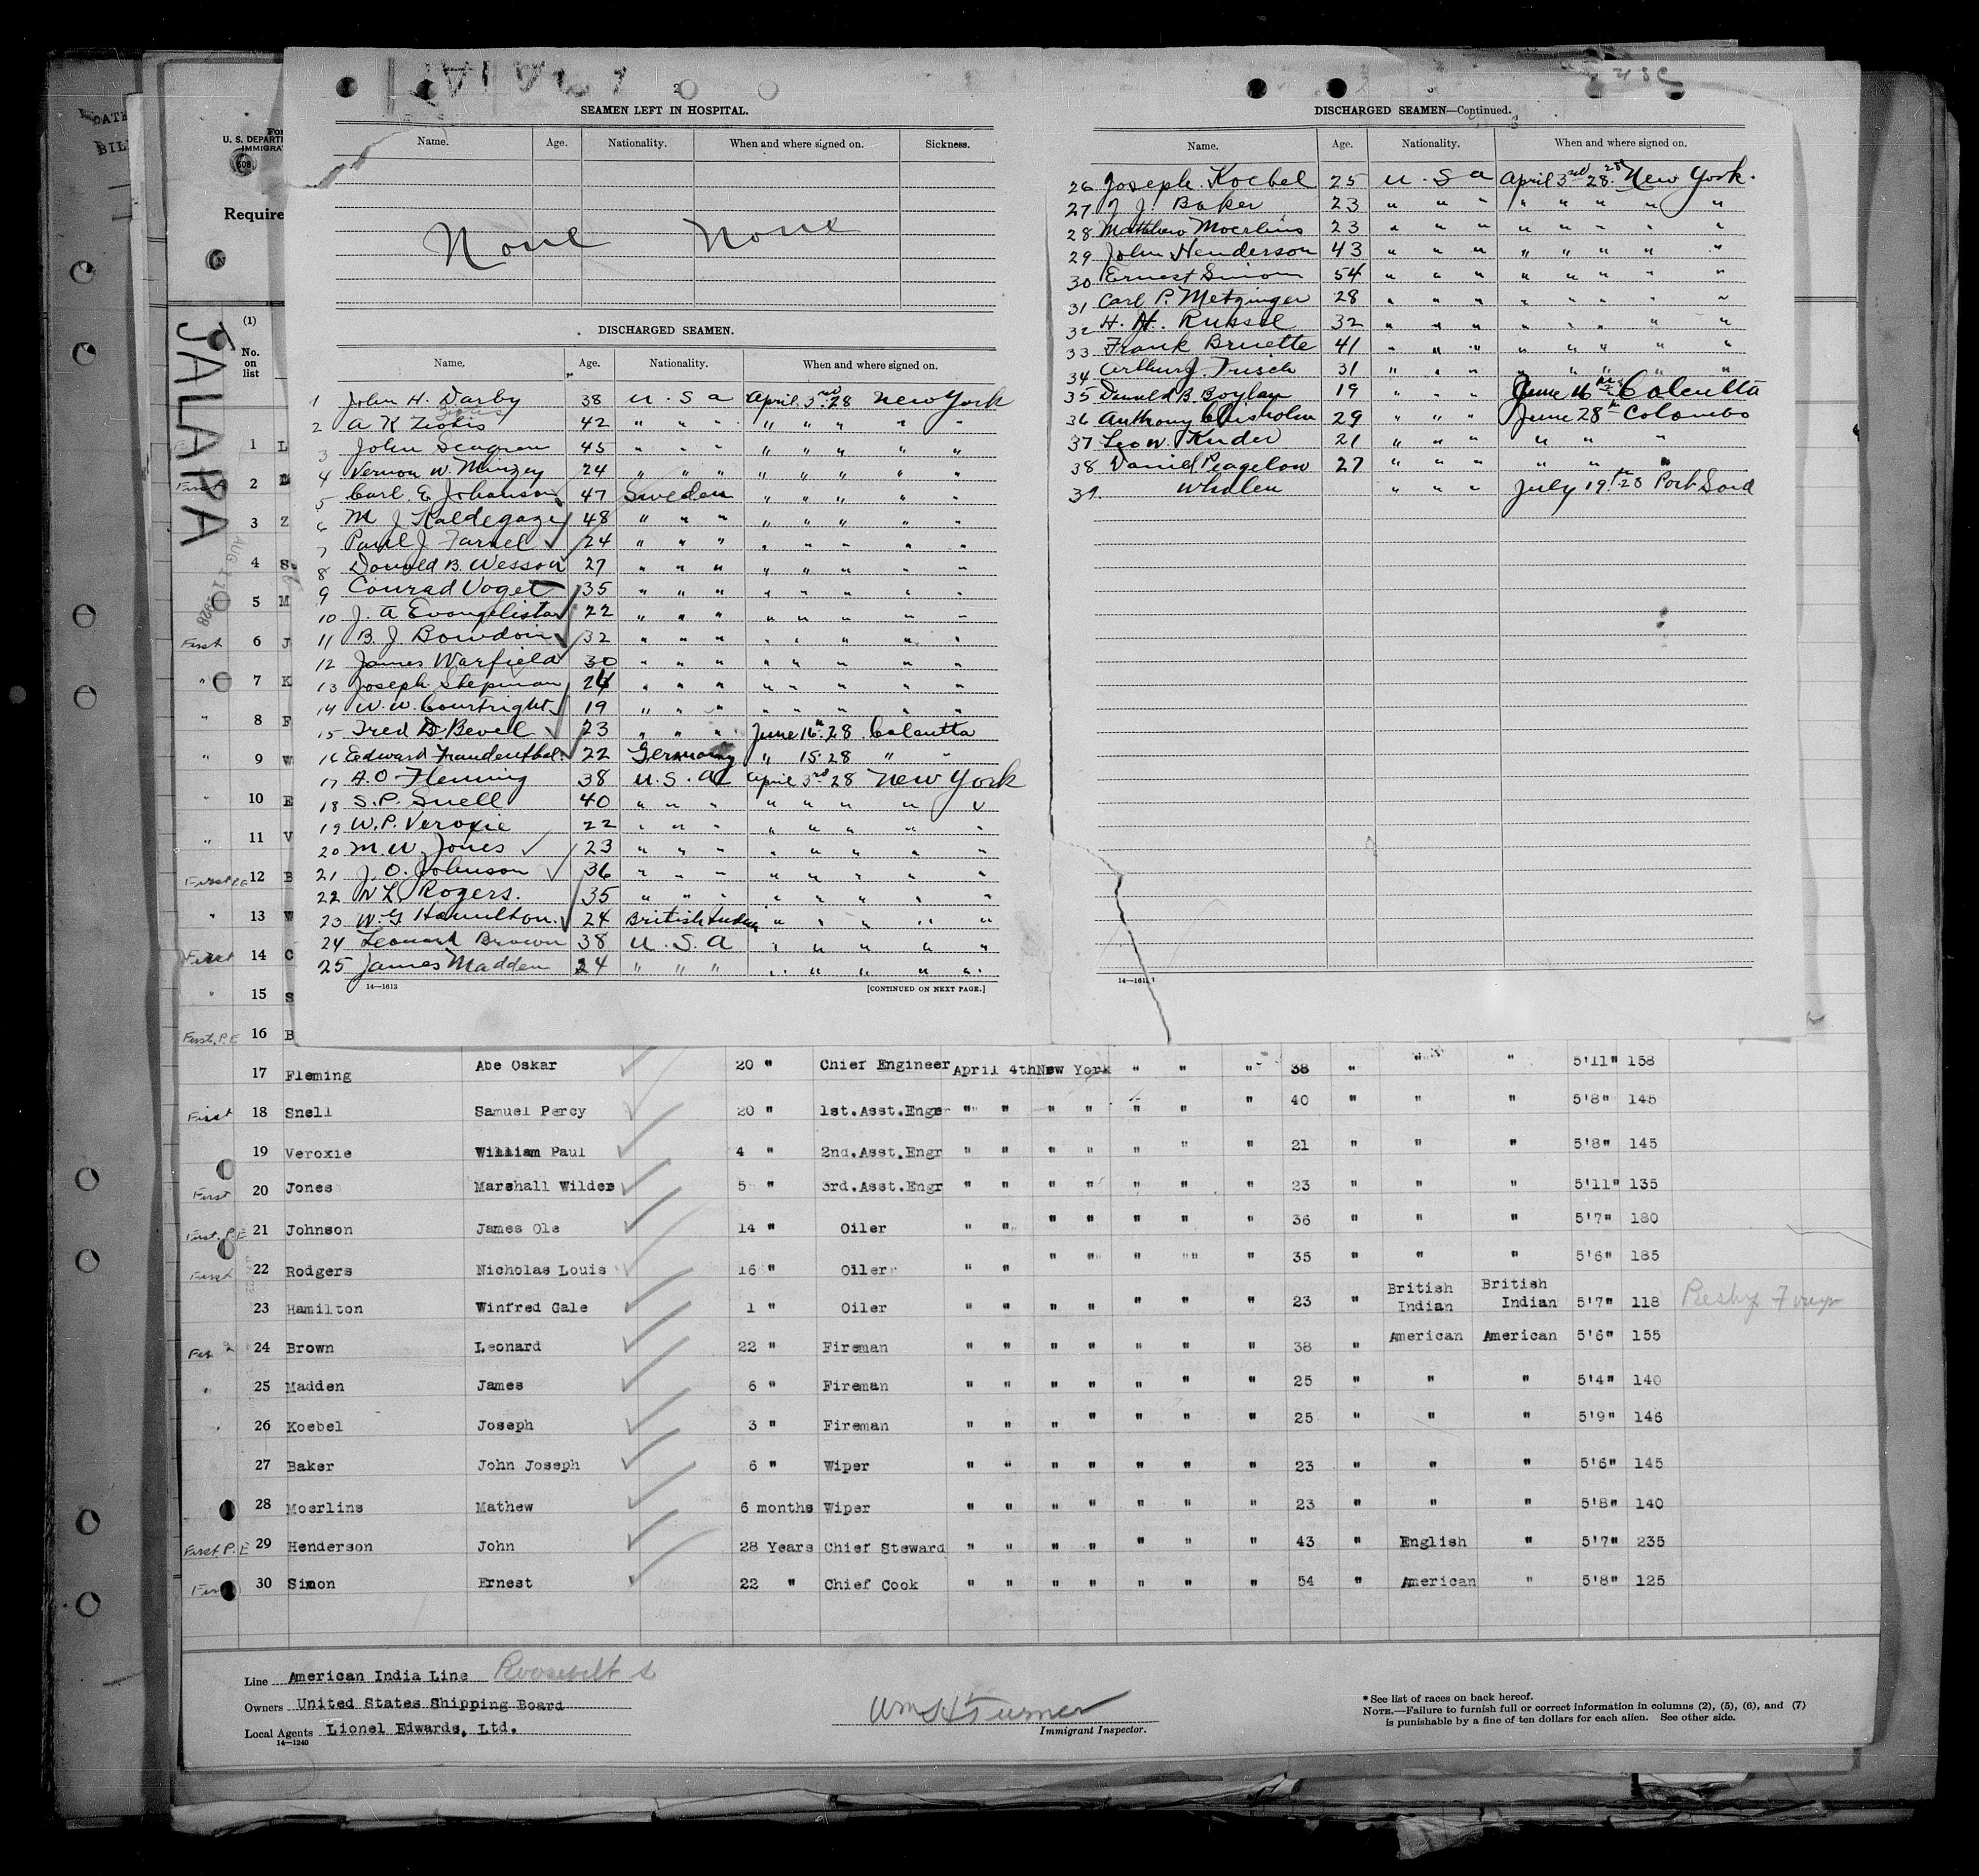 SEAMEN LEFT IN HOSPITAL.
Name. Age. Nationality. When and where signed on. Sickness.
None None
DISCHARGED SEAMEN.
Name. Age. Nationality. When and where signed on.
1 John H. Darby 38 U.S.A April 3rd 28 New York
2 A K Ziotis 42 " " " " " " " "
3 John Seagren 45 " " " " " " " "
4 Vernon W. Minzey 24 " " " " " " " "
5 Carl E Johanson 47 Sweden " " " " "
6 M J Kaldegaze 48 " " " " " " " "
7 Paul J Farnel 24 " " " " " " " "
8 Donald B. Wesson 27 " " " " " " " "
9 Conrad Voget 35 " " " " " " " "
10 J. A Evangelista 22 " " " " " " " "
11 B. J Bowdoin 32 " " " " " " " "
12 James Warfield 30 " " " " " " " "
13 Joseph Stepman 24 " " " " " " " "
14 W. W. Courtright 19 " " " " " " " "
15 Fred B Bevel 23 " " " June 16th 28 Calcutta
16 Edward Fraudenthal 22 Germany " 15 28 " "
17 A. O Fleming 38 U.S.A April 3rd 28 New York
18 S. P. Snell 40 " " " " " " " "
19 W. P. Veroxie 22 " " " " " " " "
20 M. W. Jones 23 " " " " " " " "
21 J. O. Johnson 36 " " " " " " " "
22 N L Rogers. 35 " " " " " " " "
23 W. G Hamilton. 24 British India " " " " "
24 Leonard Brown 38 U.S.A " " " " "
25 James Madden 24 " " " " " " " "
14—1613 [CONTINUED ON NEXT PAGE.]
DISCHARGED SEAMEN—Continued.
Name. Age. Nationality. When and where signed on.
26 Joseph Koebel 25 U.S.A April 3rd 28 New York.
27 J J. Baker 23 " " " " " " " "
28 Matthew Moerlins 23 " " " " " " " "
29 John Henderson 43 " " " " " " " "
30 Ernest Simon 54 " " " " " " " "
31 Carl P. Metzinger 28 " " " " " " " "
32 H. H. Russel 32 " " " " " " " "
33 Frank Bruette 41 " " " " " " " "
34 Arthur J. Frisch 31 " " " " " " " "
35 Donald B. Boylan 19 " " " June 16th Calcutta
36 Anthony Chisholm 29 " " " June 28th Colombo
37 Leo W. Kuder 21 " " " " " "
38 Daniel Peagelow 27 " " " " " "
39. Whalen " " " July 19th 28 Port Said
14—1613
U. S. DEPART
IMMIGRAT
Require
JALAPA
AUG 1928
(1)
No. on list
1 L
First 2
3 Z
4 S
5 M
First 6 J
" 7 K
" 8 F
" 9 W
" 10 E
" 11 V
First P.E 12 B
" 13 W
First 14 C
" 15 S
First. P.E 16 B
17 Fleming Abe Oskar 20 " Chief Engineer April 4th New York " " " 38 " " " 5'11" 158
First 18 Snell Samuel Percy 20 " 1st.Asst.Engr " " " " " " " 40 " " " 5'8" 145
19 Veroxie William Paul 4 " 2nd.Asst.Engr " " " " " " " 21 " " " 5'8" 145
First 20 Jones Marshall Wilder 5 " 3rd.Asst.Engr " " " " " " " 23 " " " 5'11" 135
First. P.E 21 Johnson James Ole 14 " Oiler " " " " " " " 36 " " " 5'7" 180
First 22 Rodgers Nicholas Louis 16 " Oiler " " " " " " " 35 " " " 5'6" 185
23 Hamilton Winfred Gale 1 " Oiler " " " " " " " 23 " British Indian British Indian 5'7" 118
24 Brown Leonard 22 " Fireman " " " " " " " 38 " American American 5'6" 155
" 25 Madden James 6 " Fireman " " " " " " " 25 " " " 5'4" 140
" 26 Koebel Joseph 3 " Fireman " " " " " " " 25 " " " 5'9" 146
27 Baker John Joseph 6 " Wiper " " " " " " " 23 " " " 5'6" 145
28 Moerlins Mathew 6 months Wiper " " " " " " " 23 " " " 5'8" 140
First. P.E 29 Henderson John 28 Years Chief Steward " " " " " " " 43 " English " 5'7" 235
First 30 Simon Ernest 22 " Chief Cook " " " " " " " 54 " American " 5'8" 125
Line American India Line Roosevelt
Owners United States Shipping Board
Local Agents Lionel Edwards, Ltd.
14—1240
Wm H Turner
Immigrant Inspector.
* See list of races on back hereof.
NOTE.—Failure to furnish full or correct information in columns (2), (5), (6), and (7)
is punishable by a fine of ten dollars for each alien. See other side.